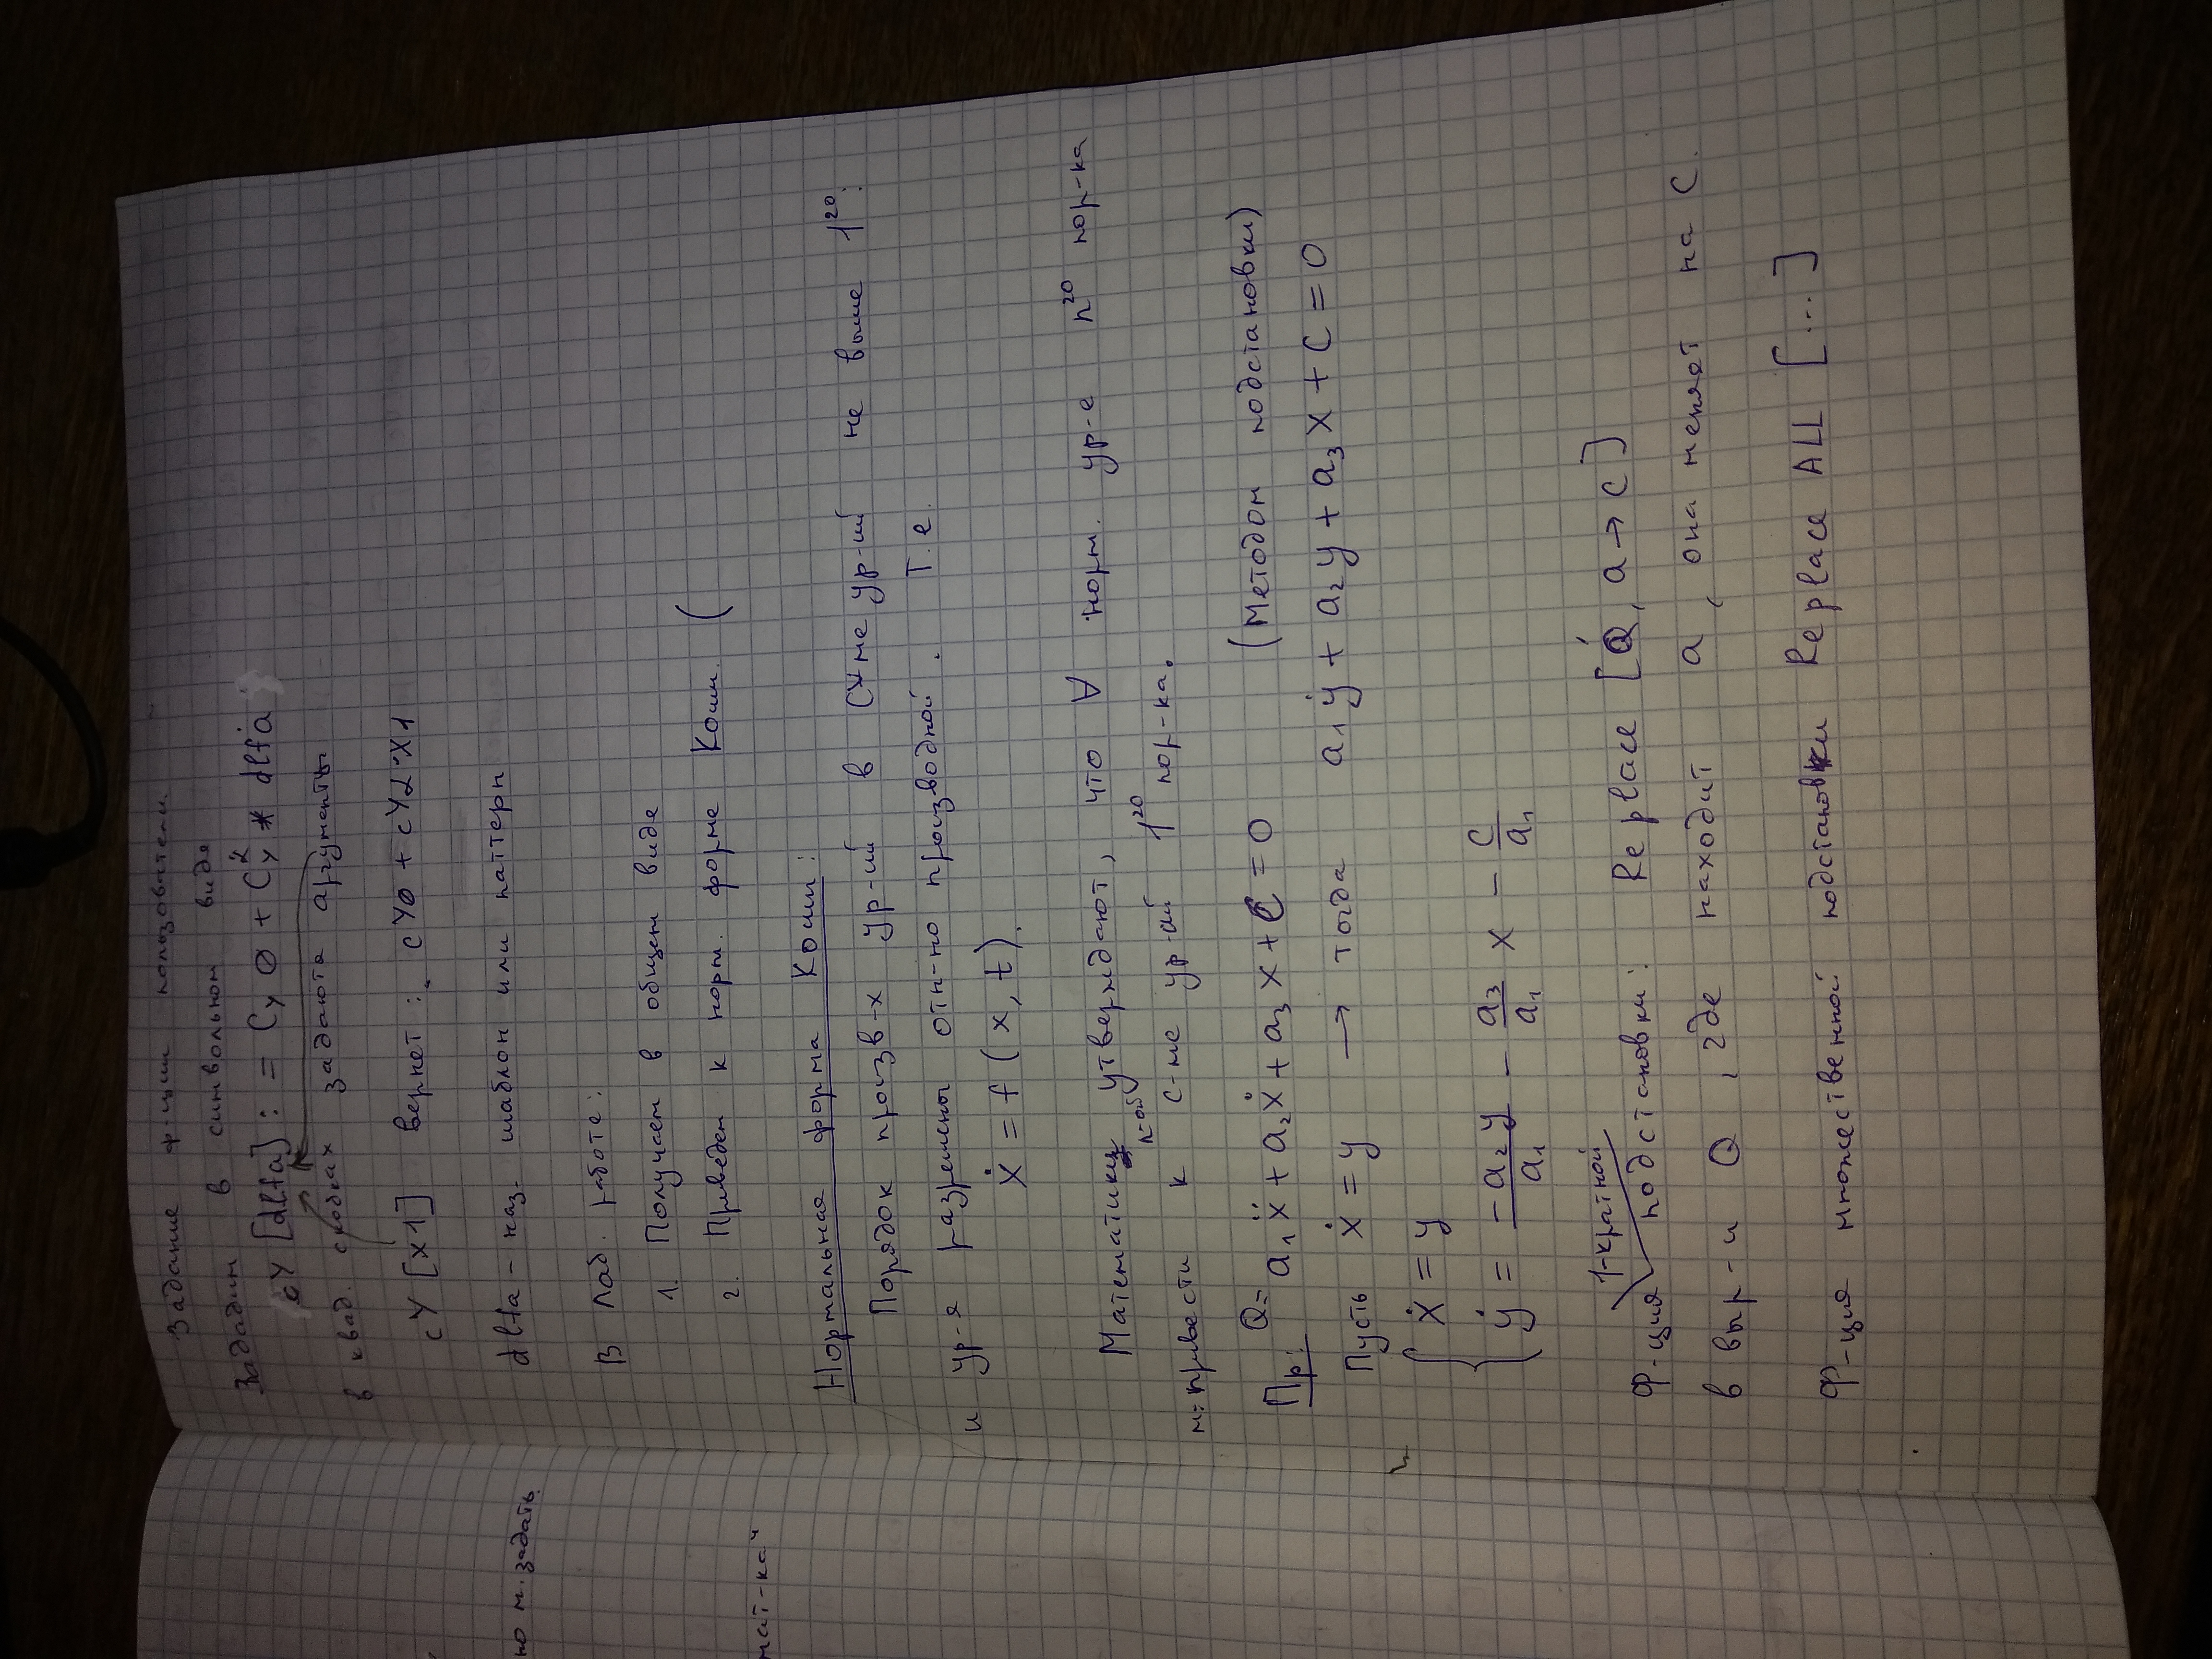 Задание ф-ции пользователем.
Зададим в символьном виде
cY [dlta] : = Cy 0 + Cy² * dlta
в квад. скобках задаются аргументы
cY [x1] вернет : cY0 + cY2*X1
dlta - наз. шаблон или паттерн
В лаб. работе:
1. Получаем в общем виде
2. Приведем к норм. форме Коши. (
Нормальная форма Коши:
Порядок произв-х ур-ий в с-ме ур-ий не выше 1го:
и ур-я разрешены отн-но производной. Т.е.
ẋ = f (x, t).
Математики утверждают, что ∀ норм. ур-е nго пор-ка
м: привести к n-ой с-ме ур-ий 1го пор-ка.
Пр: Q= a₁ẍ + a₂ẋ + a₃x + C = 0 (Методом подстановки)
Пусть ẋ = y → тогда a₁ẏ + a₂y + a₃x + C = 0
{ ẋ = y
ẏ = - a₂y/a₁ - a₃/a₁ x - C/a₁
Ф-ция 1-кратной подстановки: Replace [Q, a → c]
в выр-и Q, где находит a, она меняет на C.
Ф-ция множественной подстановки Replace ALL [...]
но м. задать
мат-кач